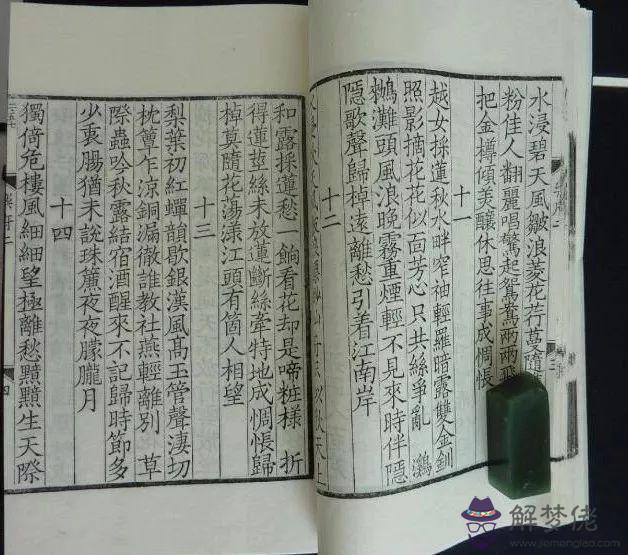 水浸碧天風皺浪菱花荇蔓隨
粉佳人翻麗唱驚起鴛鴦兩兩飛
把金罇傾美釀休思往事成惆悵
十一
越女採蓮秋水畔窄袖輕羅暗露雙金釧
照影摘花花似面芳心只共絲爭亂 鸂
鶒灘頭風浪晚霧重煙輕不見來時伴隱
隱歌聲歸棹遠離愁引着江南岸
十二
和露採蓮愁一餉看花却是啼粧樣 折
得蓮莖絲未放蓮斷絲牽特地成惆悵歸
棹莫隨花蕩漾江頭有箇人相望
十三
梨葉初紅蟬韻歇銀漢風髙玉管聲淒切
枕簟乍涼銅漏徹誰教社燕輕離別 草
際蟲吟秋露結宿酒醒來不記歸時節多
少衷腸猶未說珠簾夜夜朦朧月
十四
獨倚危樓風細細望極離愁黯黯生天際
四
解梦佬
www.jiemenglao.com